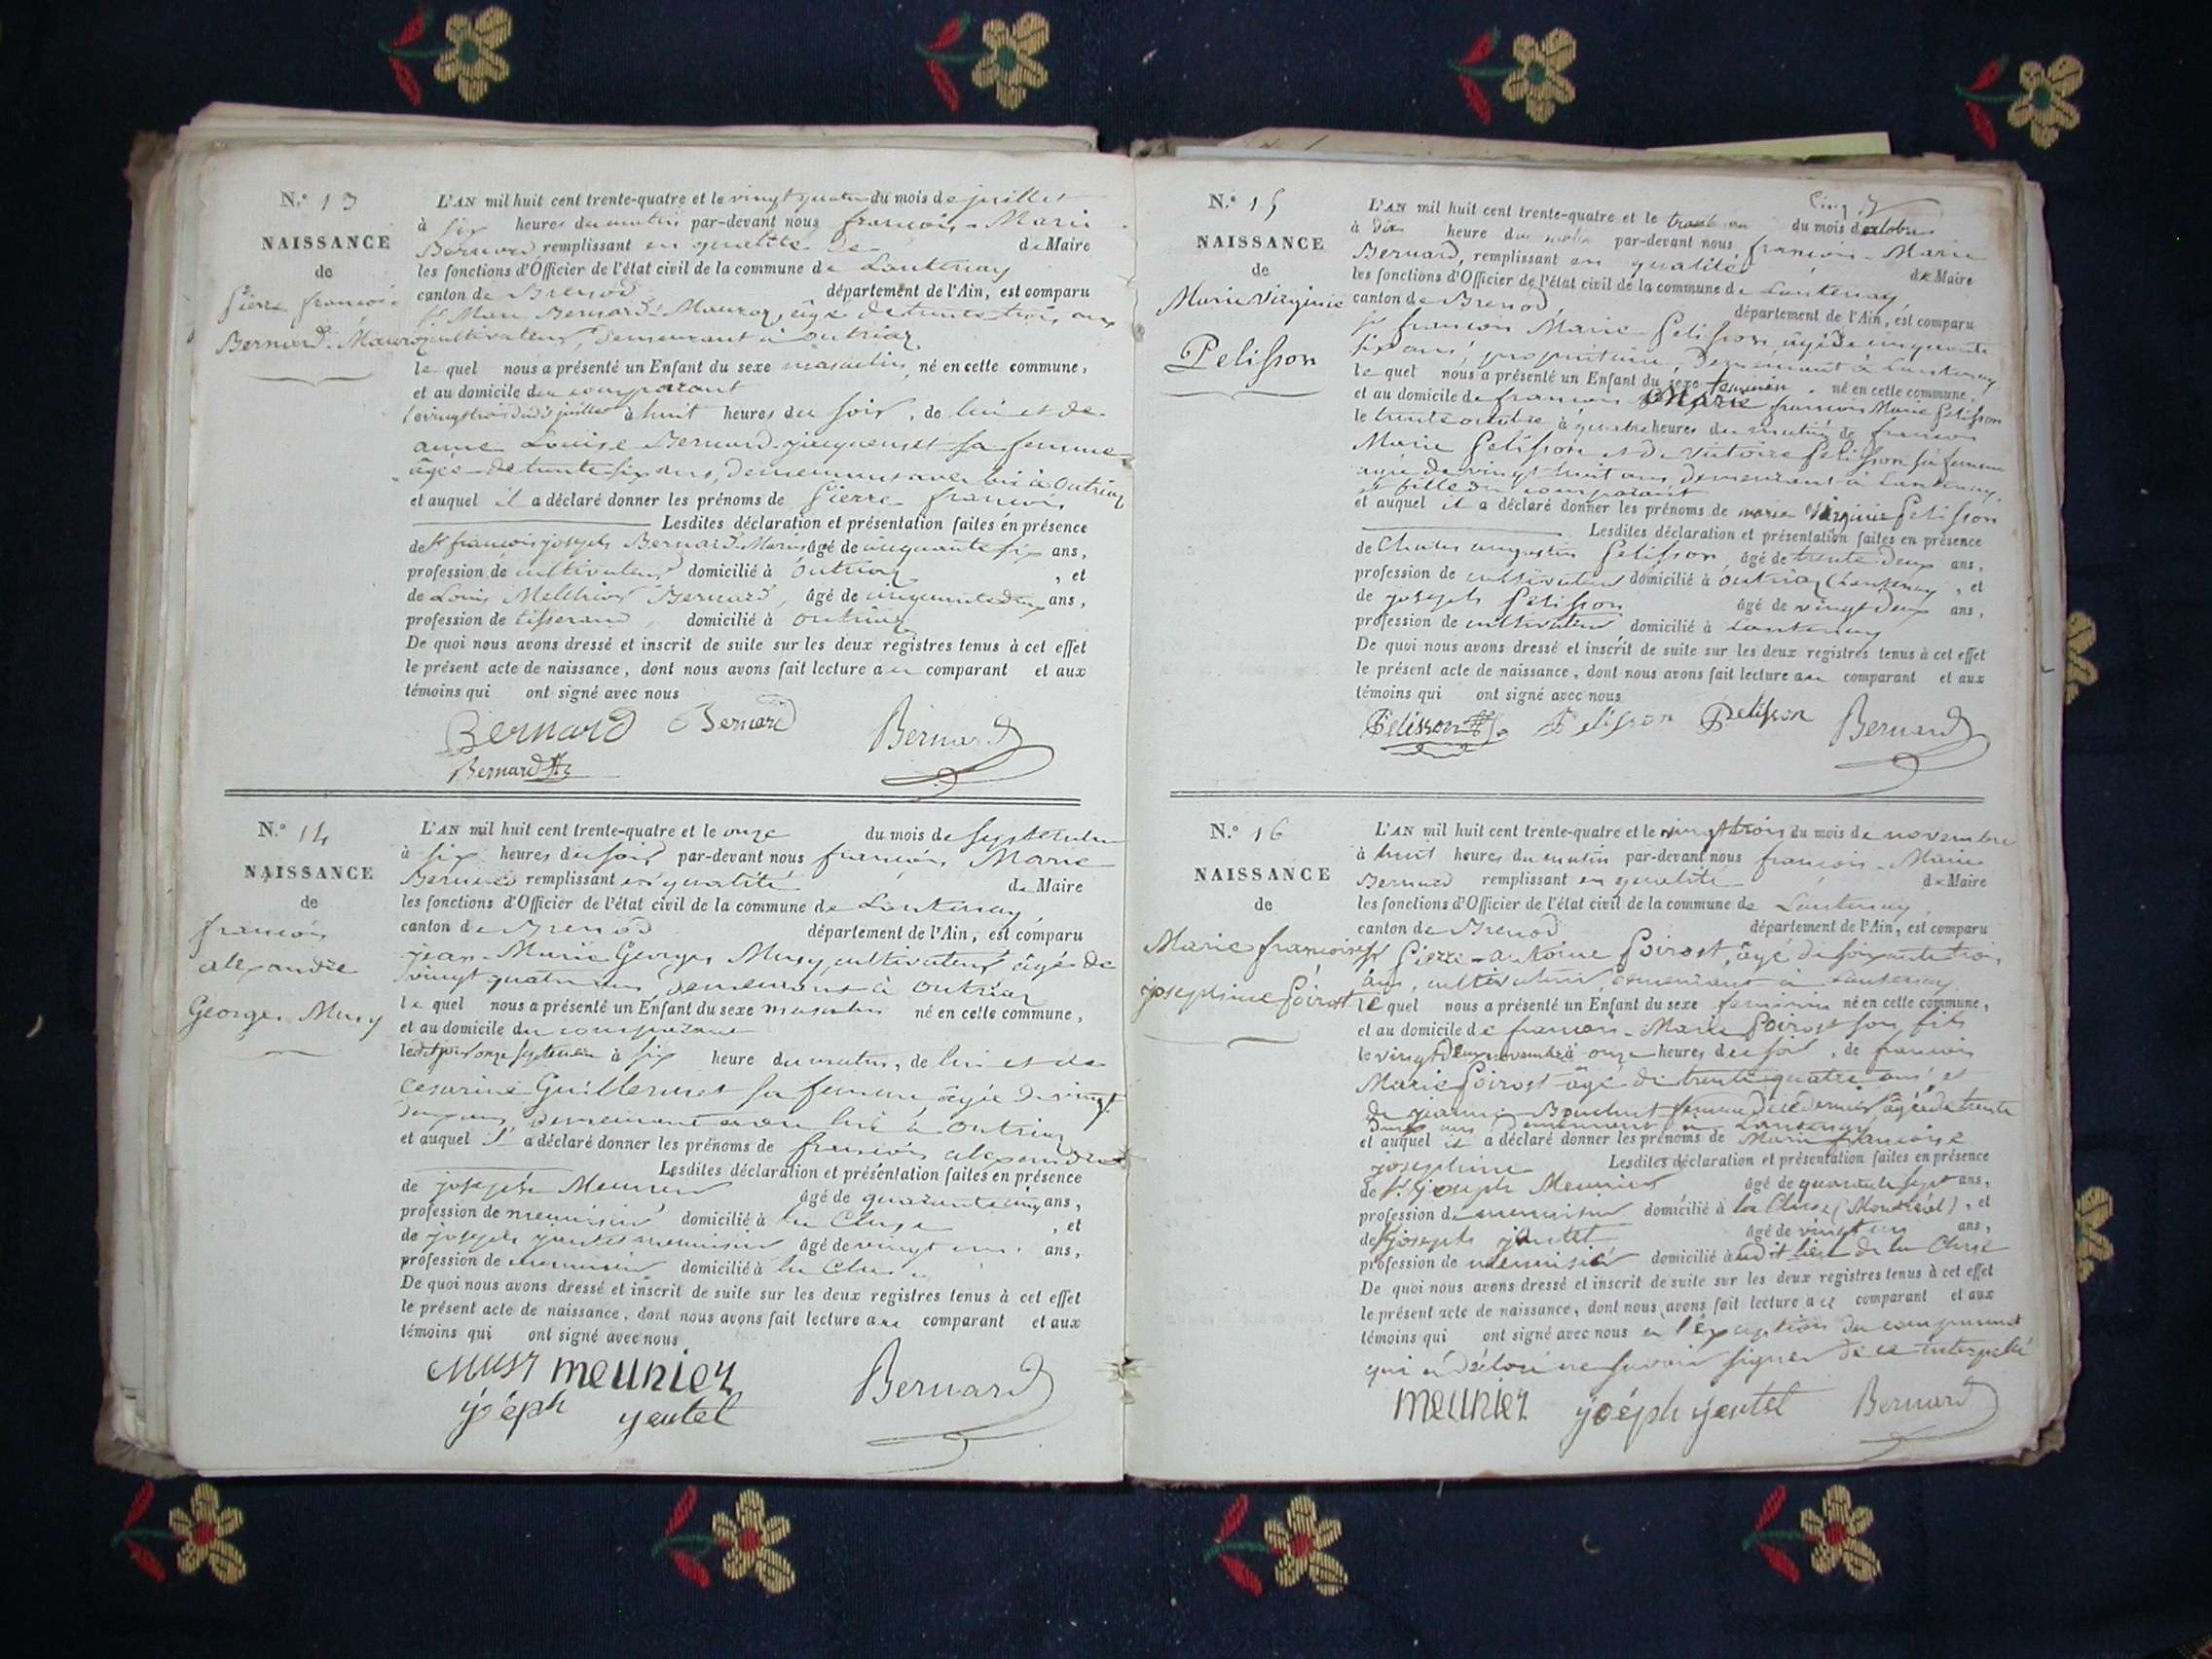 N.° 13
NAISSANCE
de
Pierre françois
Bernard-Mauroz
L'AN mil huit cent trente-quatre et le vingt quatre du mois de juillet
à six heures du matin par-devant nous françois-Marie
Bernard remplissant en qualité de de Maire
les fonctions d'Officier de l'état civil de la commune de Lantenay
canton de Brenod département de l'Ain, est comparu
Sr Marc Bernard-Mauroz, âgé de trente trois ans
cultivateur, demeurant à Outriaz
le quel nous a présenté un Enfant du sexe masculin, né en cette commune,
et au domicile du comparant
le vingt trois dudit juillet à huit heures du soir, de lui et de
anne Louise Bernard sa femme
âgée de trente six ans, demeurant avec lui à Outriaz
et auquel il a déclaré donner les prénoms de Pierre françois
Lesdites déclaration et présentation faites en présence
de Sr françois joseph Bernard-Marin âgé de cinquante six ans,
profession de cultivateur domicilié à Outriaz, et
de Louis Melchior Bernard, âgé de cinquante deux ans,
profession de tisserand, domicilié à Outriaz
De quoi nous avons dressé et inscrit de suite sur les deux registres tenus à cet effet
le présent acte de naissance, dont nous avons fait lecture au comparant et aux
témoins qui ont signé avec nous
Bernard Bernard Bernard
Bernard
N.° 14
NAISSANCE
de
françois
alexandre
Georges-Musy
L'AN mil huit cent trente-quatre et le onze du mois de septembre
à six heures du soir par-devant nous françois Marie
Bernard remplissant en qualité de Maire
les fonctions d'Officier de l'état civil de la commune de Lantenay,
canton de Brenod département de l'Ain, est comparu
jean-Marie Georges Musy, cultivateur âgé de
vingt quatre ans, demeurant à Outriaz
le quel nous a présenté un Enfant du sexe masculin né en cette commune,
et au domicile du comparant
ledit jour onze septembre à six heure du matin, de lui et de
Cesarine Guillermet sa femme âgée de vingt
deux ans, demeurant avec lui à Outriaz
et auquel il a déclaré donner les prénoms de françois alexandre
Lesdites déclaration et présentation faites en présence
de joseph Meunier âgé de quarante cinq ans,
profession de menuisier domicilié à la Cluse, et
de joseph jantet menuisier âgé de vingt un ans,
profession de menuisier domicilié à la Cluse
De quoi nous avons dressé et inscrit de suite sur les deux registres tenus à cet effet
le présent acte de naissance, dont nous avons fait lecture au comparant et aux
témoins qui ont signé avec nous
Musy meunier Bernard
joséph jentet
N.° 15
NAISSANCE
de
Marie Virginie
Pelisson
L'AN mil huit cent trente-quatre et le trente un du mois d'octobre
à dix heure du matin par-devant nous françois-Marie
Bernard, remplissant en qualité de Maire
les fonctions d'Officier de l'état civil de la commune de Lantenay,
canton de Brenod, département de l'Ain, est comparu
Sr françois Marie Pelisson âgé de cinquante
six ans, propriétaire, demeurant à Lantenay
le quel nous a présenté un Enfant du sexe feminin, né en cette commune,
et au domicile de françois Marie françois Marie Pelisson
le trente octobre à quatre heures du matin, de françois
Marie Pelisson et de Victoire Pelisson sa femme
agée de vingt huit ans, demeurant à Lantenay,
et fille du comparant
et auquel il a déclaré donner les prénoms de marie virginie Pelisson
Lesdites déclaration et présentation faites en présence
de Charles augustin Pelisson, âgé de trente deux ans,
profession de cultivateur domicilié à Outriaz (Lantenay), et
de joseph Pelisson âgé de vingt deux ans,
profession de cultivateur domicilié à Lantenay
De quoi nous avons dressé et inscrit de suite sur les deux registres tenus à cet effet
le présent acte de naissance, dont nous avons fait lecture au comparant et aux
témoins qui ont signé avec nous
Pelisson Pelisson Pelisson Bernard
N.° 16
NAISSANCE
de
Marie françoise
josephine Poirost
L'AN mil huit cent trente-quatre et le vingt trois du mois de novembre
à huit heures du matin par-devant nous françois-Marie
Bernard remplissant en qualité de Maire
les fonctions d'Officier de l'état civil de la commune de Lantenay
canton de Brenod département de l'Ain, est comparu
Sr Pierre-antoine Poirost, âgé de soixante trois
ans, cultivateur, demeurant à Lantenay
le quel nous a présenté un Enfant du sexe feminin né en cette commune,
et au domicile de françois-Marie Poirost son fils
le vingt deux novembre à onze heures du soir, de françois
Marie Poirost âgé de trente quatre ans, et
de jeanne Bouchut femme de ce dernier âgée de trente
deux ans demeurant à Lantenay
et auquel il a déclaré donner les prénoms de Marie françoise
josephine Lesdites déclaration et présentation faites en présence
de Sr joseph Meunier âgé de quarante sept ans,
profession de menuisier domicilié à la Cluse (Montréal), et
de joseph jantet âgé de vingt un ans,
profession de menuisier domicilié à udit lieu de la Cluse
De quoi nous avons dressé et inscrit de suite sur les deux registres tenus à cet effet
le présent acte de naissance, dont nous avons fait lecture au comparant et aux
témoins qui ont signé avec nous à l'exception du comparant
qui a déclaré ne savoir signer de ce interpellé
meunier joséph jentet Bernard